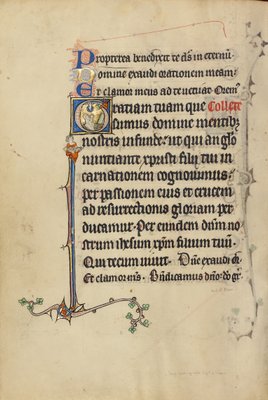 Propterea benedixit te ds in eternu
Domine exaudi orationem meam
Et clamor meus ad te ueniat Orem
Gratiam tuam que Collecte
sumus domine mentibz
nostris infunde ut qui anglo
nuntiante xpristi filij tui in
carnationem cognouimus
per passionem eius et crucem
ad resurrectionis gloriam per
ducamur Per eundem dnm no
strum ihesum xpm filium tuu
Qui tecum uiuit Dne exaudi or
Et clamor ms Bndicamus dno do gr